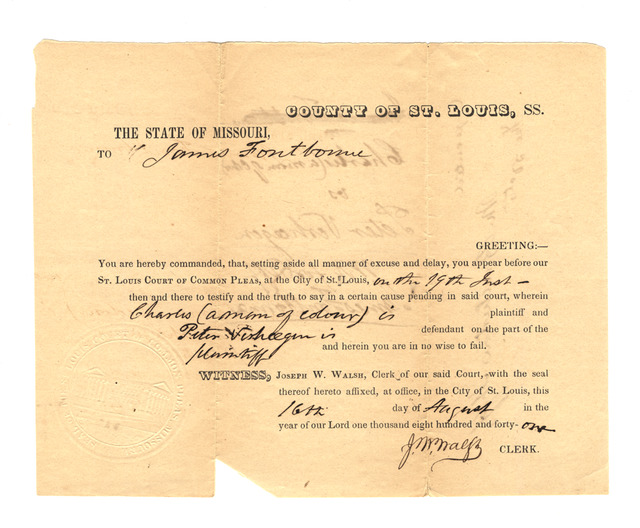 COUNTY OF ST. LOUIS, SS.
THE STATE OF MISSOURI,
TO James Fontbonne
GREETING:—
You are hereby commanded, that, setting aside all manner of excuse and delay, you appear before our
ST. LOUIS COURT OF COMMON PLEAS, at the City of St. Louis, on the 19th Inst—
then and there to testify and the truth to say in a certain cause pending in said court, wherein
Charles (a man of colour) is plaintiff and
Peter Verhaegen is defendant on the part of the
Plaintiff and herein you are in no wise to fail.
WITNESS, JOSEPH W. WALSH, Clerk of our said Court, with the seal
thereof hereto affixed, at office, in the City of St. Louis, this
16th day of August in the
year of our Lord one thousand eight hundred and forty-one
J. W. Walsh CLERK.